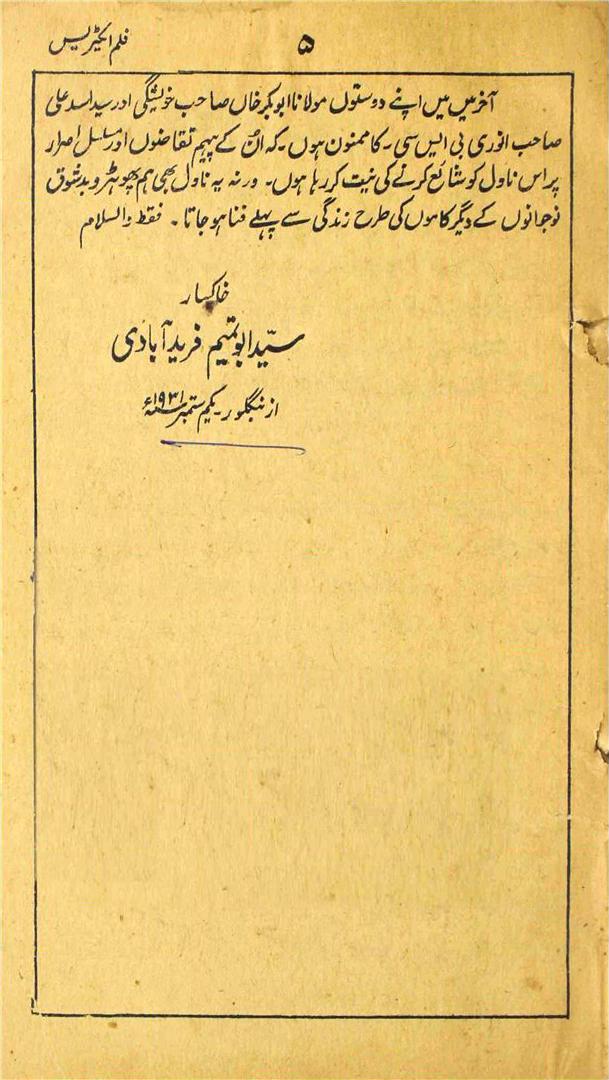 فلم ایکٹریس
۵
آخر میں میں اپنے دوستوں مولانا ابوبکر خاں صاحب خویشگی اور سید اسد علی
صاحب انوری بی ایس سی ۔ کا ممنون ہوں ۔ کہ ان کے پیہم تقاضوں اور مسلسل اصرار
پر اس ناول کو شائع کرنے کی نیت کر رہا ہوں ۔ ورنہ یہ ناول بھی ہم پھوہڑ و بدشوق
نوجوانوں کے دیگر کاموں کی طرح زندگی سے پہلے فنا ہو جاتا ۔ فقط والسلام
خاکسار
سیّد ابو تمیم فرید آبادی
از بنگلور یکم ستمبر ۱۹۳۱ء